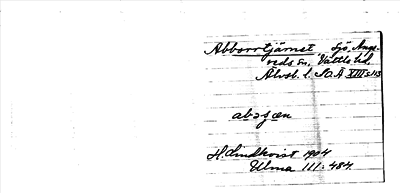 Abborrtjärnet Sjö, Ange-
reds sn, Vättle hd,
Älvsb. l. Sv. Ä XIII s. 113
abɔʂæn
H. Lindkvist 1904
Ulma 111:484.